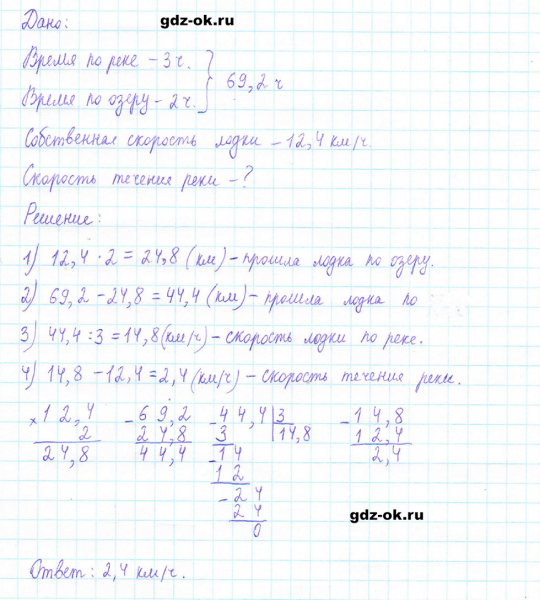 Дано: gdz-ok.ru
Время по реке – 3 ч.
Время по озеру – 2 ч. } 69,2 ч
Собственная скорость лодки – 12,4 км/ч.
Скорость течения реки – ?
Решение:
1) 12,4 · 2 = 24,8 (км) – прошла лодка по озеру.
2) 69,2 – 24,8 = 44,4 (км) – прошла лодка по
3) 44,4 : 3 = 14,8 (км/ч) – скорость лодки по реке.
4) 14,8 – 12,4 = 2,4 (км/ч) – скорость течения реки.
× 12,4 – 69,2 – 44,4 | 3 – 14,8
2 24,8 3 14,8 12,4
24,8 44,4 – 14 2,4
12
– 24
24
0
gdz-ok.ru
Ответ: 2,4 км/ч.